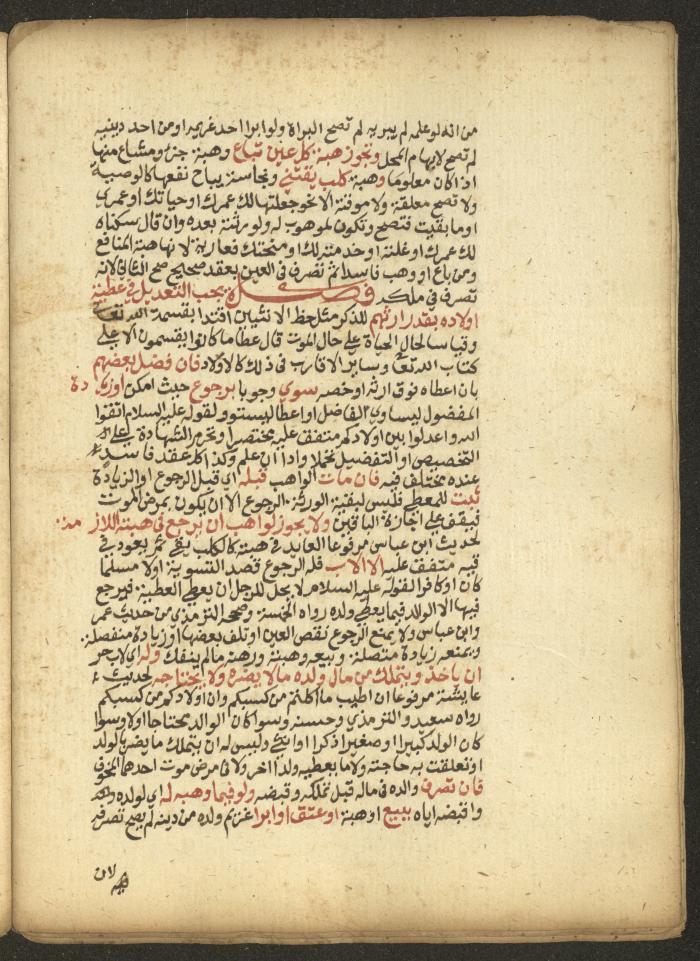 من انه لو علمه لم يبريه لم تصح البراة ولو ابرا احد غريميه او من احد دينيه
لم تصح لابهام المحل وتجوز هبة كل عين تباع وهبة جزء ومشاع منها
اذا كان معلوما وهبة كلب يقتني ونجاسة يباح نفعها كالوصية
ولا تصح معلقة ولا موقتة الا نحو جعلتها لك عمرك او حياتك او عمري
او ما بقيت فتصح وتكون لموهوب له ولورثته بعده وان قال سكناه
لك عمرك او غلته او خدمته لك او منحتك فعارية لانها هبة المنافع
ومن باع او وهب فاسدا ثم تصرف في العين بعقد صحيح صح الثاني لانه
تصرف في ملكه فصل يجب التعديل في عطية
اولاده بقدر ارثهم للذكر مثل حظ الانثيين اقتدا بقسمة الله تعالى
وقياسا لحال الحياة على حال الموت قال عطا ما كانوا يقسمون الا على
كتاب الله تعالى وساير الاقارب في ذلك كالاولاد فان فضل بعضهم
بان اعطاه فوق ارثه او خصه سوي وجوبا برجوع حيث امكن او زيادة
المفضول ليساوي الفاضل او اعطا ليستووا لقوله عليه السلام اتقوا
الله واعدلوا بين اولادكم متفق عليه مختصرا وتحرم الشهادة على
التخصيص او التفضيل تحملا وادا ان علم وكذا كل عقد فاسد
عنده مختلف فيه فان مات الواهب قبله اي قبل الرجوع او الزيادة
ثبت للمعطى فليس لبقية الورثة الرجوع الا ان يكون بمرض الموت
فيقف على اجازة الباقين ولا يجوز لواهب ان يرجع في هبته اللازمة
لحديث ابن عباس مرفوعا العايد في هبته كالكلب يقي ثم يعود في
قيه متفق عليه الا الاب فله الرجوع قصد التسوية اولا مسلما
كان او كافرا لقوله عليه السلام لا يحل للرجل ان يعطي العطية فيرجع
فيها الا الوالد فيما يعطي ولده رواه الخمسة وصححه الترمذي من حديث عمر
وابن عباس ولا يمنع الرجوع نقص العين او تلف بعضها او زيادة منفصلة
ويمنعه زيادة متصلة وبيعه وهبته ورهنه ما لم ينفك وله اي لاب حر
ان ياخذ ويتملك من مال ولده ما لا يضره ولا يحتاجه لحديث
عايشة مرفوعا ان اطيب ما اكلتم من كسبكم وان اولادكم من كسبكم
رواه سعيد والترمذي وحسنه وسوا كان الوالد محتاجا اولا وسوا
كان الولد كبيرا او صغيرا ذكرا او انثى وليس له ان يتملك ما يضر بالولد
او تعلقت به حاجته ولا ما يعطيه ولدا اخر ولا في مرض موت احدهما المخوف
فان تصرف والده في ماله قبل تملكه وقبضه ولو فيما وهبه له اي لولده
واقبضه اياه ببيع او هبة او عتق او ابرا غريم ولده من دينه لم يصح تصرفه
لان